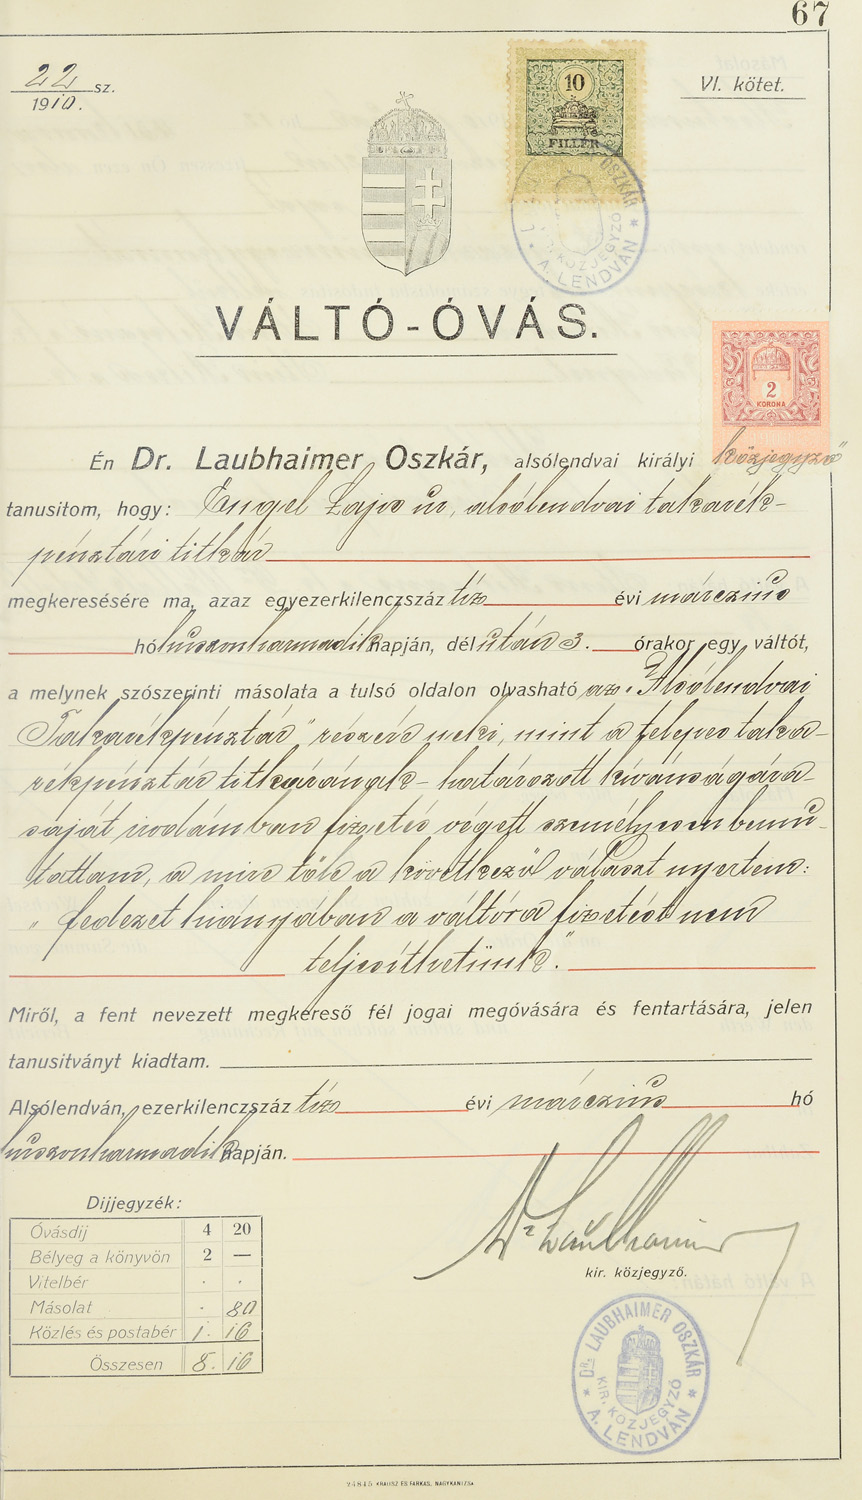 67
22 sz.
1910.
VI. kötet.
10
FILLÉR
OSZKÁR
KIR. KÖZJEGYZŐ
* A. LENDVÁN *
VÁLTÓ-ÓVÁS.
2
KORONA
Én Dr. Laubhaimer Oszkár, alsólendvai királyi közjegyző
tanusitom, hogy: Engel Lajos ur, alsólendvai takarék-
pénztári titkár
megkeresésére ma, azaz egyezerkilenczszáz tíz évi márczius
hó huszonharmadik napján, délután 3. órakor egy váltót,
a melynek szószerinti másolata a tulsó oldalon olvasható az „Alsólendvai
Takarékpénztár" részére neki, mint a felperes taka-
rékpénztár titkárának - határozott kívánságára
saját irodámban fizetés végett személyesen bemu-
tattam, a mire tőle a következő választ nyertem:
„fedezet hiányában a váltóra fizetést nem
teljesíthetünk."
Miről, a fent nevezett megkereső fél jogai megóvására és fentartására, jelen
tanusitványt kiadtam.
Alsólendván, ezerkilenczszáz tíz évi márczius hó
huszonharmadik napján.
Dr Laubhaimer
kir. közjegyző.
Dijjegyzék:
Óvásdij 4 20
Bélyeg a könyvön 2 —
Vitelbér . .
Másolat . 80
Közlés és postabér 1. 16
Összesen 8. 16
* DR. LAUBHAIMER OSZKÁR *
KIR. KÖZJEGYZŐ
A. LENDVÁN
24845 KRAUSZ ÉS FARKAS, NAGYKANIZSA